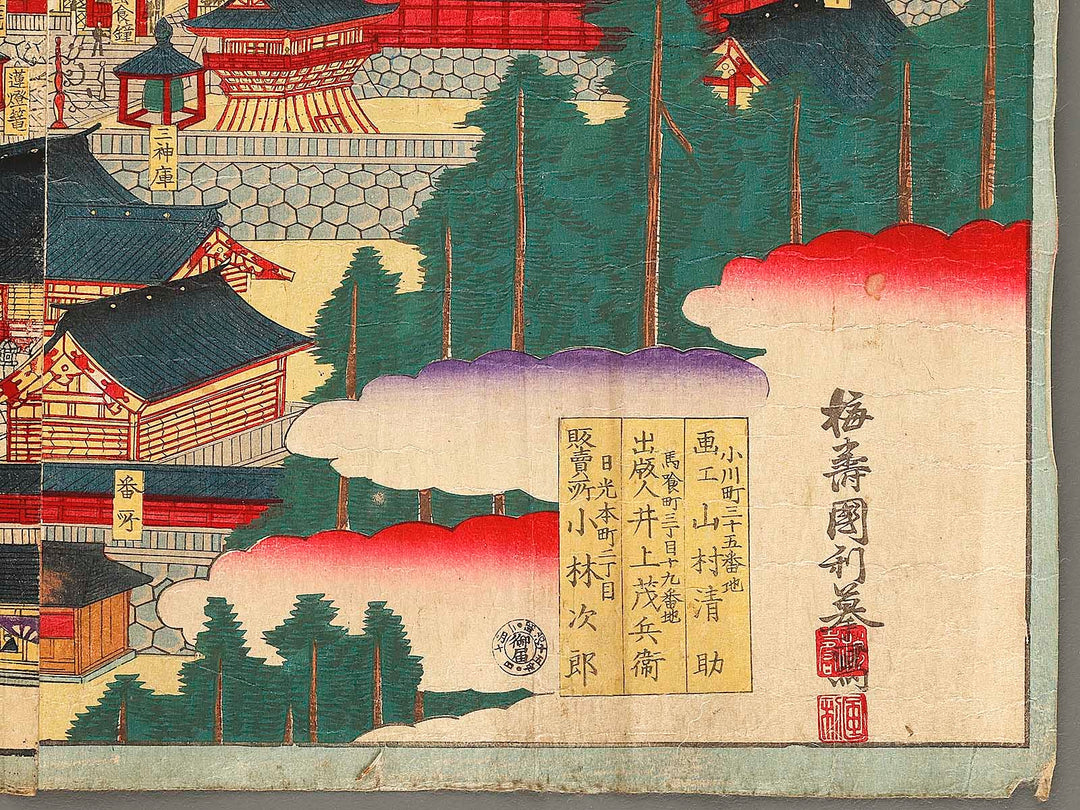 梅壽國利墓
小川町三十五番地
画工 山村清助
馬喰町三丁目十九番地
出版人 井上茂兵衞
日光本町二丁目
販賣所 小林次郎
御届
三神庫
番所
蓮燈籠
食鐘